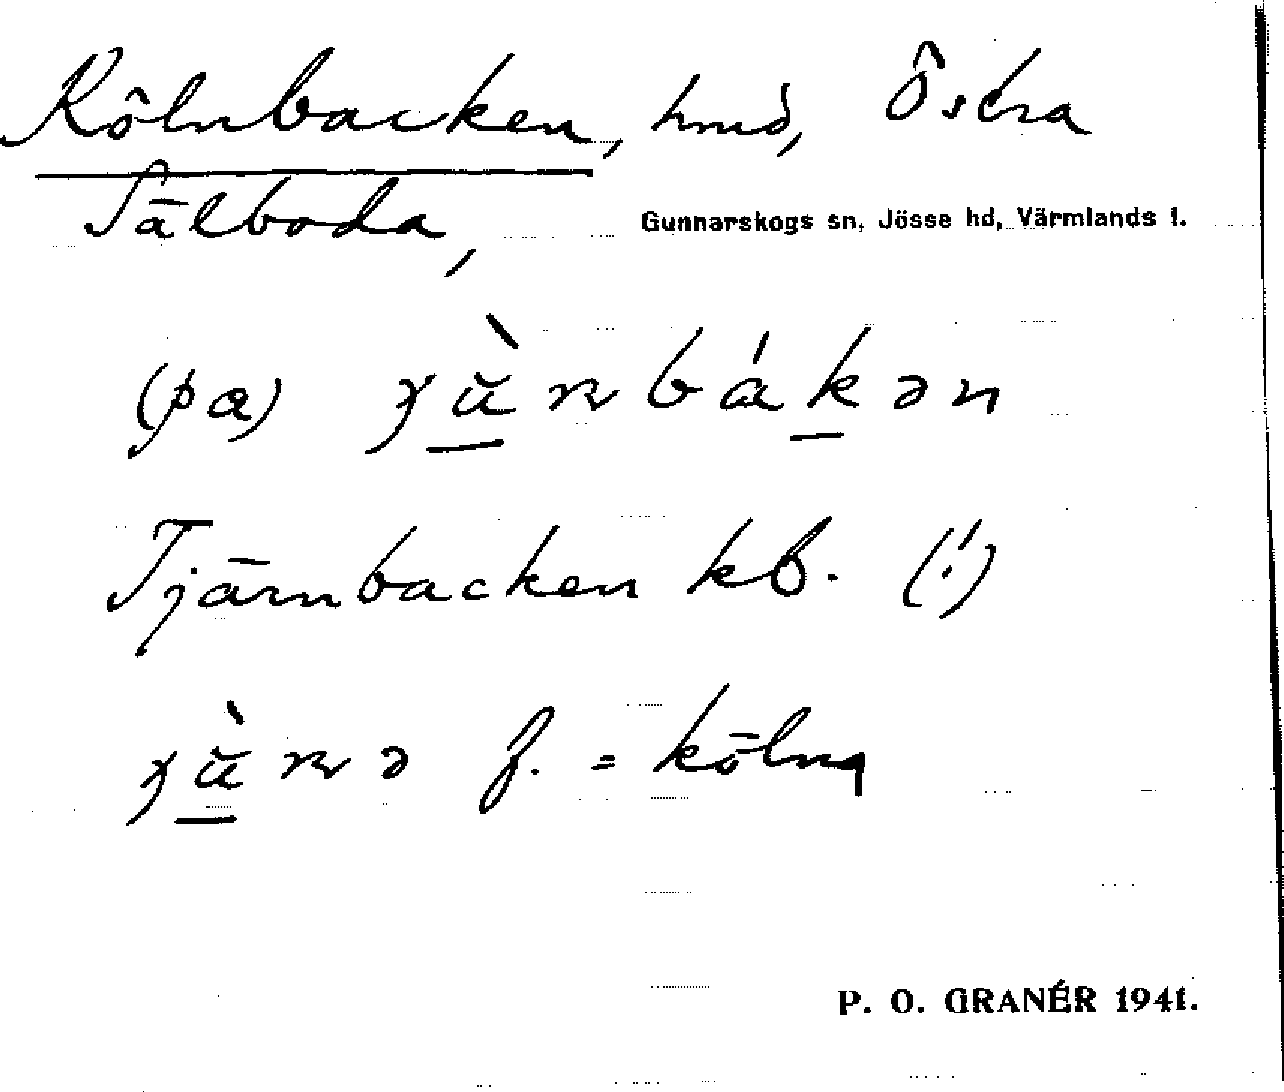 Kölnbacken, hmd, Östra
Tälboda,
Gunnarskogs sn, Jösse hd, Värmlands l.
(pa) bákən
Tjärnbacken kb. (!)
f. = kölna
P. O. GRANÉR 1941.